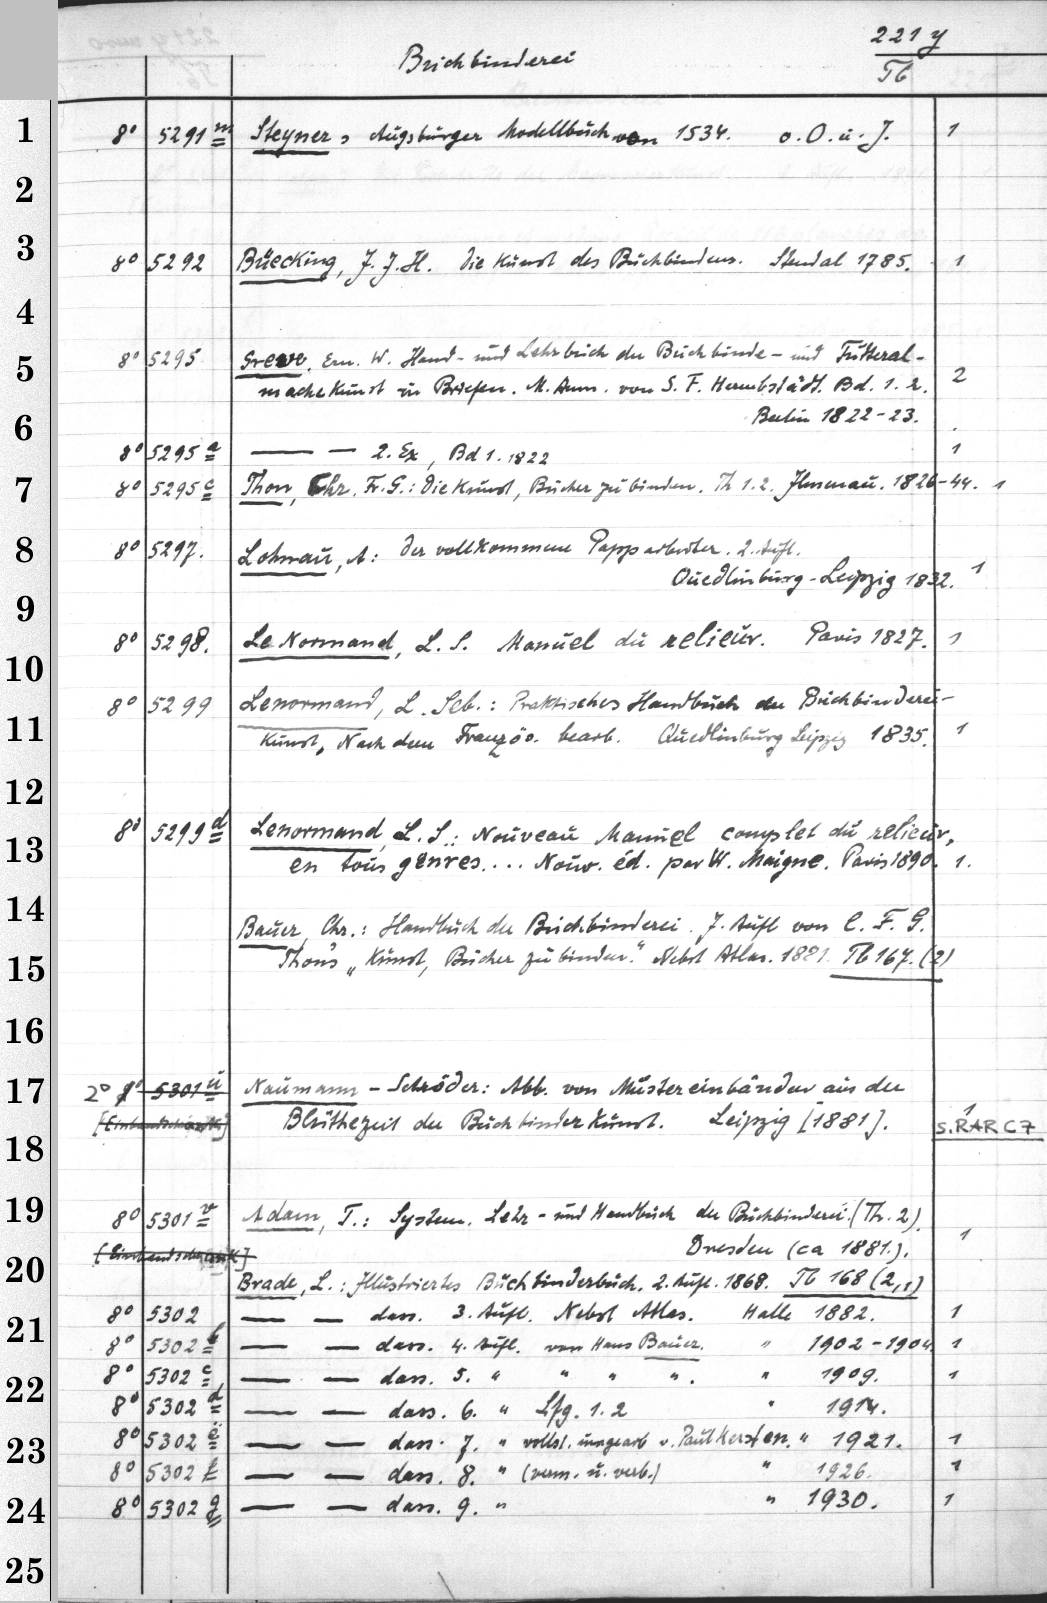 Buchbinderei
221 y
Tb
1 8° 5291 m Steyners Augsburger Modellbuch von 1534. o. O. u. J. 1
2
3 8° 5292 Bücking, J. J. H. Die Kunst des Buchbindens. Stendal 1785. 1
4
5 8° 5295 Greve, Ern. W. Hand- und Lehrbuch der Buchbinde- und Futteral-
machekunst in Briefen. M. Anm. von S. F. Hermbstädt. Bd. 1. 2. 2
Berlin 1822-23.
6 8° 5295 a — — 2. Ex, Bd 1. 1822 1
7 8° 5295 c Thon, Chr. Fr. G.: Die Kunst, Bücher zu binden. Th 1. 2. Ilmenau. 1826-44. 1
8 8° 5297. Lohnau, A: Der vollkommene Papparbeiter. 2. Aufl.
Quedlinburg-Leipzig 1832. 1
9
10 8° 5298. Le Normand, L. S. Manuel du relieur. Paris 1827. 1
11 8° 5299 Lenormand, L. Seb.: Praktisches Handbuch der Buchbinderei-
Kunst, Nach dem Französ. bearb. Quedlinburg Leipzig 1835. 1
12
13 8° 5299 d Lenormand, L. S.: Nouveau Manuel complet du relieur,
en tous genres... Nouv. éd. par W. Maigne. Paris 1890. 1.
14 Bauer, Chr.: Handbuch der Buchbinderei. 7. Aufl von C. F. G.
15 Thon's „Kunst, Bücher zu binden." Nebst Atlas. 1881. Tb 167. (2)
16
17 2° 8° 5301 u Naumann - Schröder: Abb. von Mustereinbänden aus der
[Einbandschrank] Blüthezeit der Buchbinderkunst. Leipzig [1881]. 1
s. RAR C 7
18
19 8° 5301 v Adam, T.: System. Lehr- und Handbuch der Buchbinderei. (Th. 2).
Dresden (ca 1881.). 1
[Einbandschrank]
20 Brade, L.: Illustriertes Buchbinderbuch. 2. Aufl. 1868. Tb 168 (2,1)
21 8° 5302 — — dass. 3. Aufl. Nebst Atlas. Halle 1882. 1
8° 5302 b — — dass. 4. Aufl. von Hans Bauer. " 1902-1904. 1
22 8° 5302 c — — dass. 5. " " " ". " 1909. 1
8° 5302 d — — dass. 6. " Lfg. 1. 2 " 1914.
23 8° 5302 e — — dass. 7. " vollst. umgearb v. Paul Kersten. " 1921. 1
8° 5302 f — — dass. 8. " (verm. u. verb.) " 1926. 1
24 8° 5302 g — — dass. 9. " " 1930. 1
25